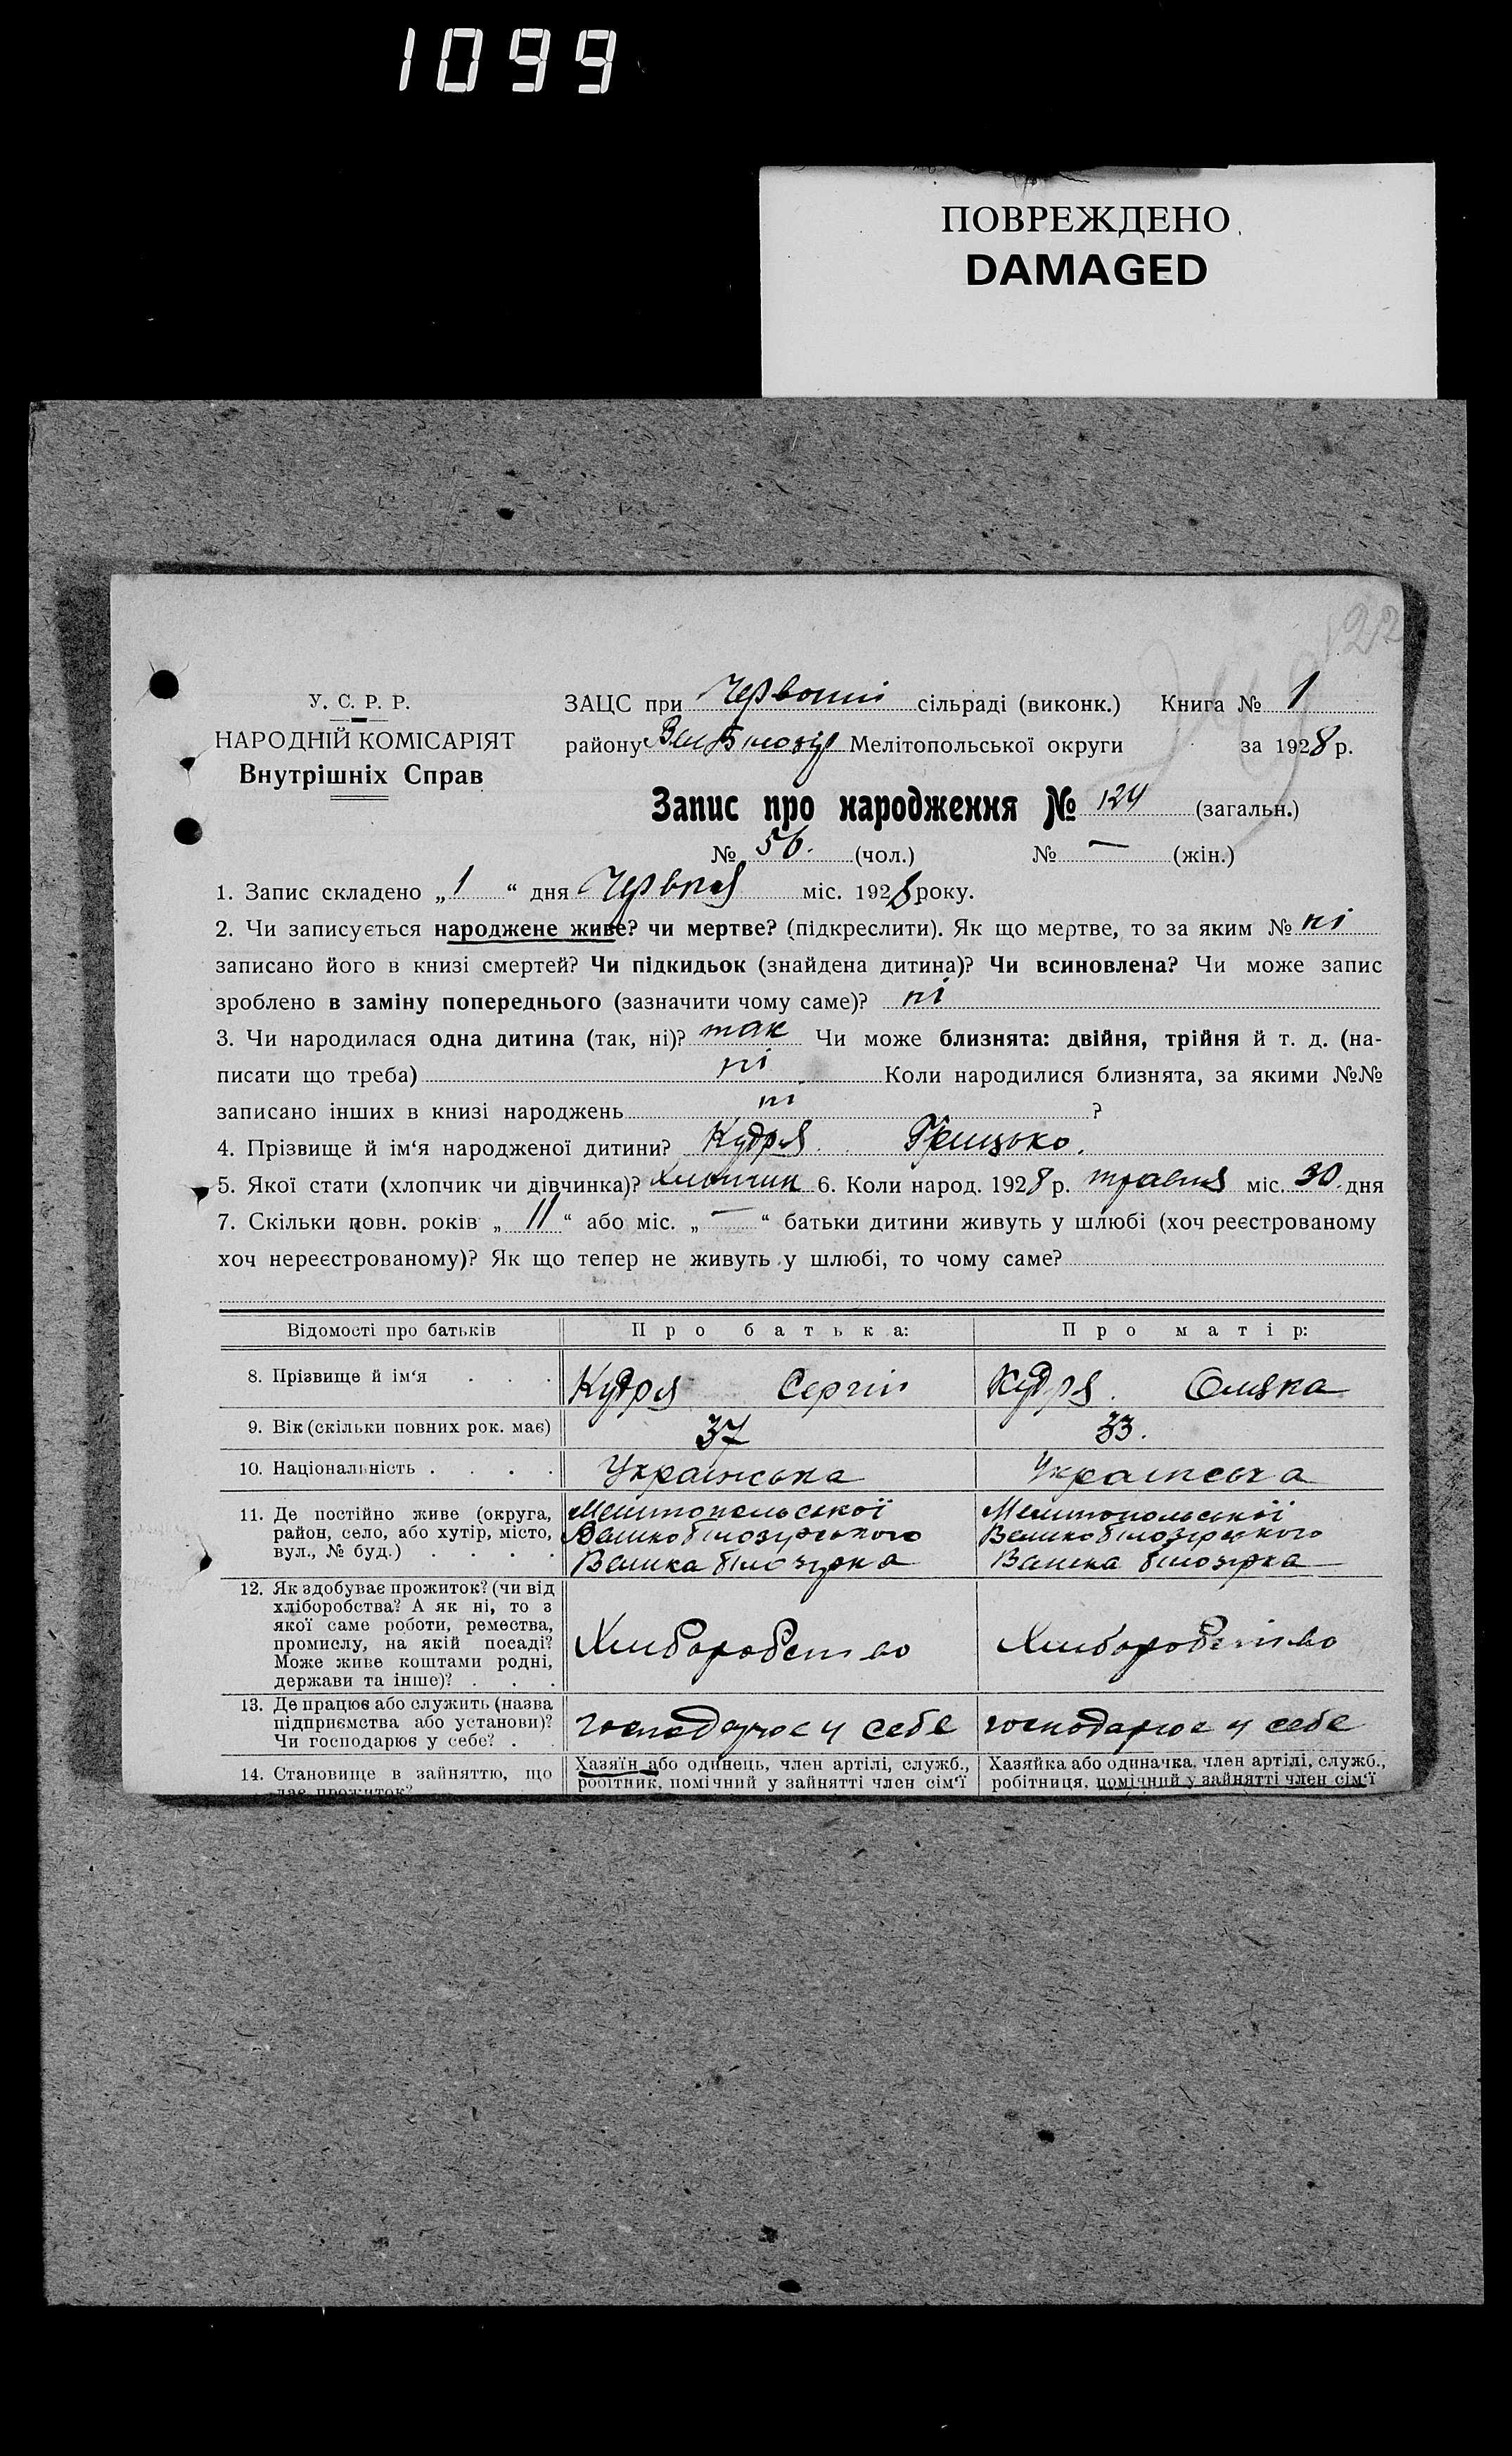 1099
ПОВРЕЖДЕНО
DAMAGED
122
У. С. Р. Р.
НАРОДНІЙ КОМІСАРІЯТ
Внутрішніх Справ
ЗАЦС при Червоній сільраді (виконк.) Книга № 1
району Вел Білозір Мелітопольської округи за 1928 р.
Запис про народження № 124 (загальн.)
№ 56. (чол.) № — (жін.)
1. Запис складено „1“ дня Червня міс. 1928 року.
2. Чи записується народжене живе? чи мертве? (підкреслити). Як що мертве, то за яким № ні
записано його в книзі смертей? Чи підкидьок (знайдена дитина)? Чи всиновлена? Чи може запис
зроблено в заміну попереднього (зазначити чому саме)? ні
3. Чи народилася одна дитина (так, ні)? так Чи може близнята: двійня, трійня й т. д. (на-
писати що треба) ні Коли народилися близнята, за якими №№
записано інших в книзі народжень ні ?
4. Прізвище й ім‘я народженої дитини? Кудря Грицько.
5. Якої стати (хлопчик чи дівчинка)? Хлопчик 6. Коли народ. 1928 р. травня міс. 30 дня
7. Скільки повн. років „11“ або міс. „—“ батьки дитини живуть у шлюбі (хоч реєстрованому
хоч нереєстрованому)? Як що тепер не живуть у шлюбі, то чому саме?
Відомості про батьків Про батька: Про матір:
8. Прізвище й ім‘я . . . Кудря Сергій Кудря. Оляна
9. Вік (скільки повних рок. має) 37 33.
10. Національність . . . . Українська Українська
11. Де постійно живе (округа,
район, село, або хутір, місто,
вул., № буд.) . . . .
Мелітопольської
Великобілозірського
Велика білозірка
Мелітопольської
Великобілозірського
Велика білозірка
12. Як здобуває прожиток? (чи від
хліборобства? А як ні, то з
якої саме роботи, ремества,
промислу, на якій посаді?
Може живе коштами родні,
держави та інше)? . . .
Хліборобство
Хліборобство
13. Де працює або служить (назва
підприємства або установи)?
Чи господарює у себе? . .
господарює у себе
господарює у себе
14. Становище в зайняттю, що
дає прожиток?
Хазяїн або одинець, член артілі, служб.,
робітник, помічний у зайнятті член сім‘ї
Хазяйка або одиначка, член артілі, служб.,
робітниця, помічний у зайнятті член сім‘ї